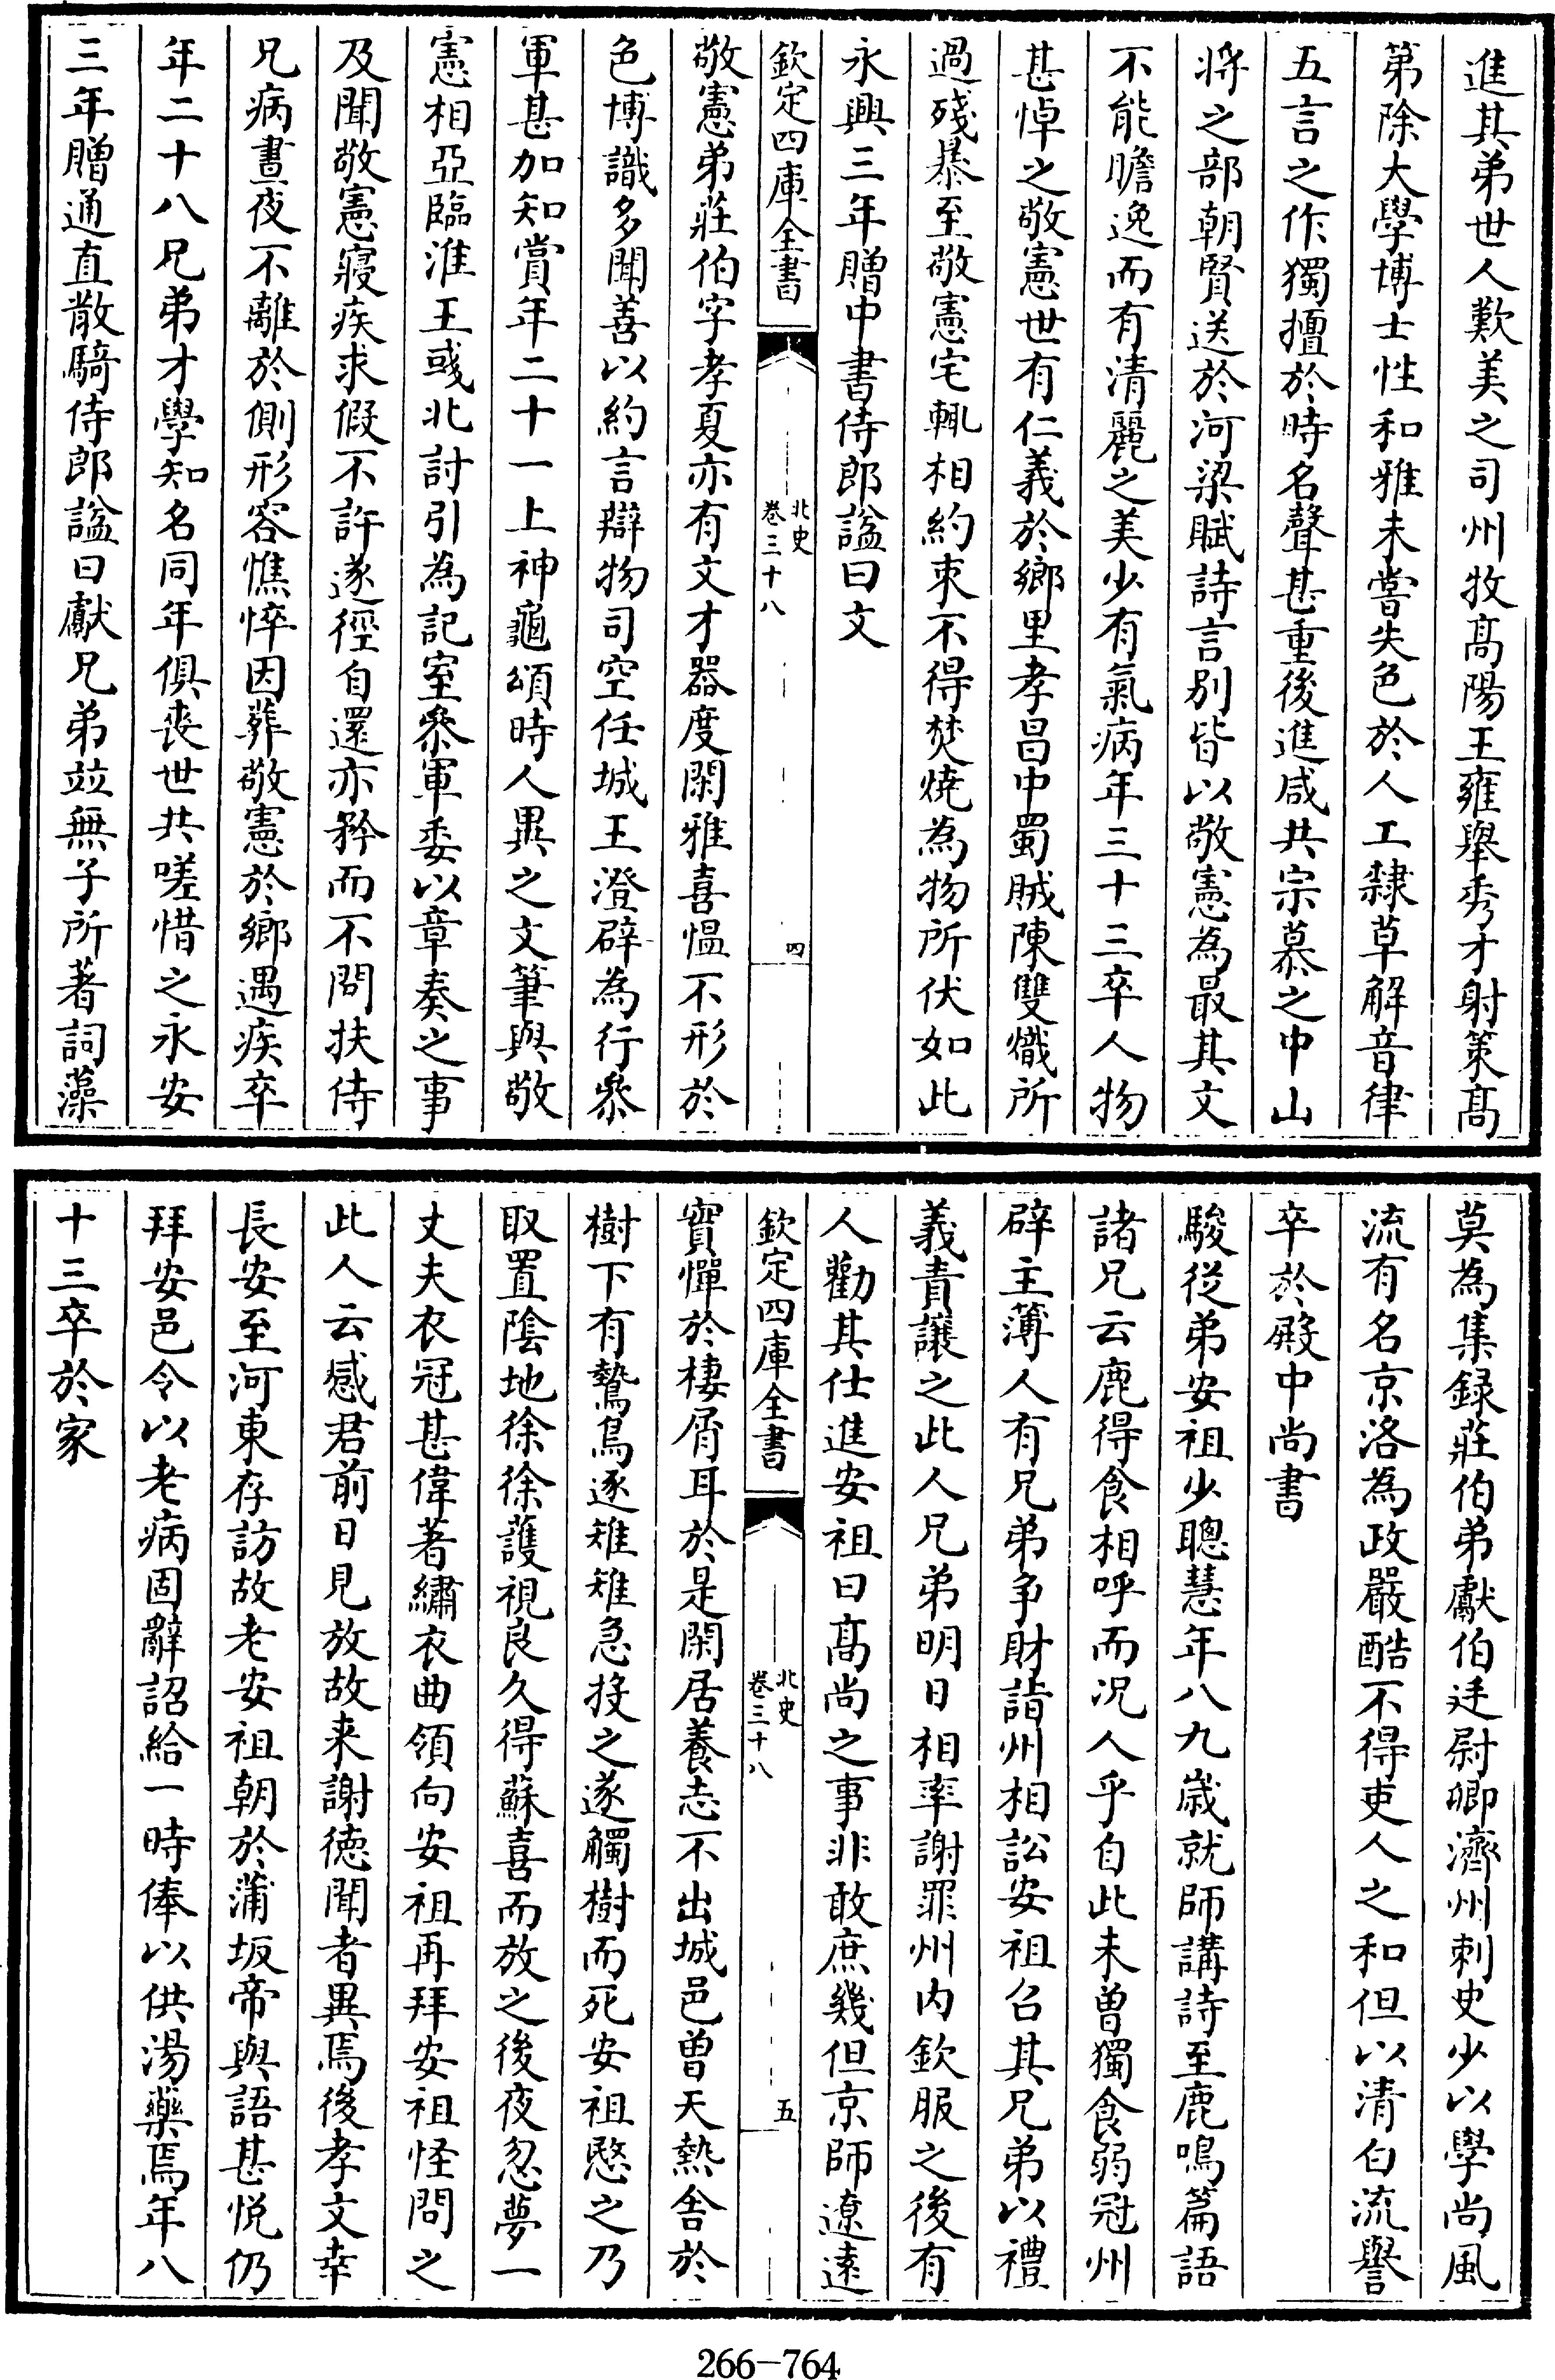 進其弟世人歎美之司州牧髙陽王雍舉秀才射策髙
第除大學博士性和雅未嘗失色於人工隸草解音律
五言之作獨擅於時名聲甚重後進咸共宗慕之中山
將之部朝賢送於河梁賦詩言别皆以敬憲為最其文
不能贍逸而有清麗之美少有氣病年三十三卒人物
甚悼之敬憲世有仁義於鄉里孝昌中蜀賊陳雙熾所
過殘暴至敬憲宅輒相約束不得焚燒為物所伏如此
永興三年贈中書侍郎諡曰文
欽定四庫全書
北史
卷三十八
四
敬憲弟莊伯字孝夏亦有文才器度閑雅喜愠不形於
色博識多聞善以約言辯物司空任城王澄辟為行參
軍甚加知賞年二十一上神龜頌時人異之文筆與敬
憲相亞臨淮王彧北討引為記室參軍委以章奏之事
及聞敬憲寢疾求假不許遂徑自還亦矜而不問扶侍
兄病晝夜不離於側形容憔悴因葬敬憲於鄉遇疾卒
年二十八兄弟才學知名同年俱喪世共嗟惜之永安
三年贈通直散騎侍郎諡曰獻兄弟竝無子所著詞藻
莫為集録莊伯弟獻伯廷尉卿濟州刺史少以學尚風
流有名京洛為政嚴酷不得吏人之和但以清白流譽
卒於殿中尚書
駿從弟安祖少聰慧年八九歳就師講詩至鹿鳴篇語
諸兄云鹿得食相呼而况人乎自此未曾獨食弱冠州
辟主簿人有兄弟爭財詣州相訟安祖召其兄弟以禮
義責讓之此人兄弟明日相率謝罪州内欽服之後有
人勸其仕進安祖曰髙尚之事非敢庶幾但京師遼遠
欽定四庫全書
北史
卷三十八
五
實憚於棲屑耳於是閑居養志不出城邑曽天熱舍於
樹下有鷙鳥逐雉雉急投之遂觸樹而死安祖愍之乃
取置陰地徐徐護視良久得蘇喜而放之後夜忽夢一
丈夫衣冠甚偉著繡衣曲領向安祖再拜安祖怪問之
此人云感君前日見放故来謝徳聞者異焉後孝文幸
長安至河東存訪故老安祖朝於蒲坂帝與語甚悦仍
拜安邑令以老病固辭詔給一時俸以供湯藥焉年八
十三卒於家
266-764